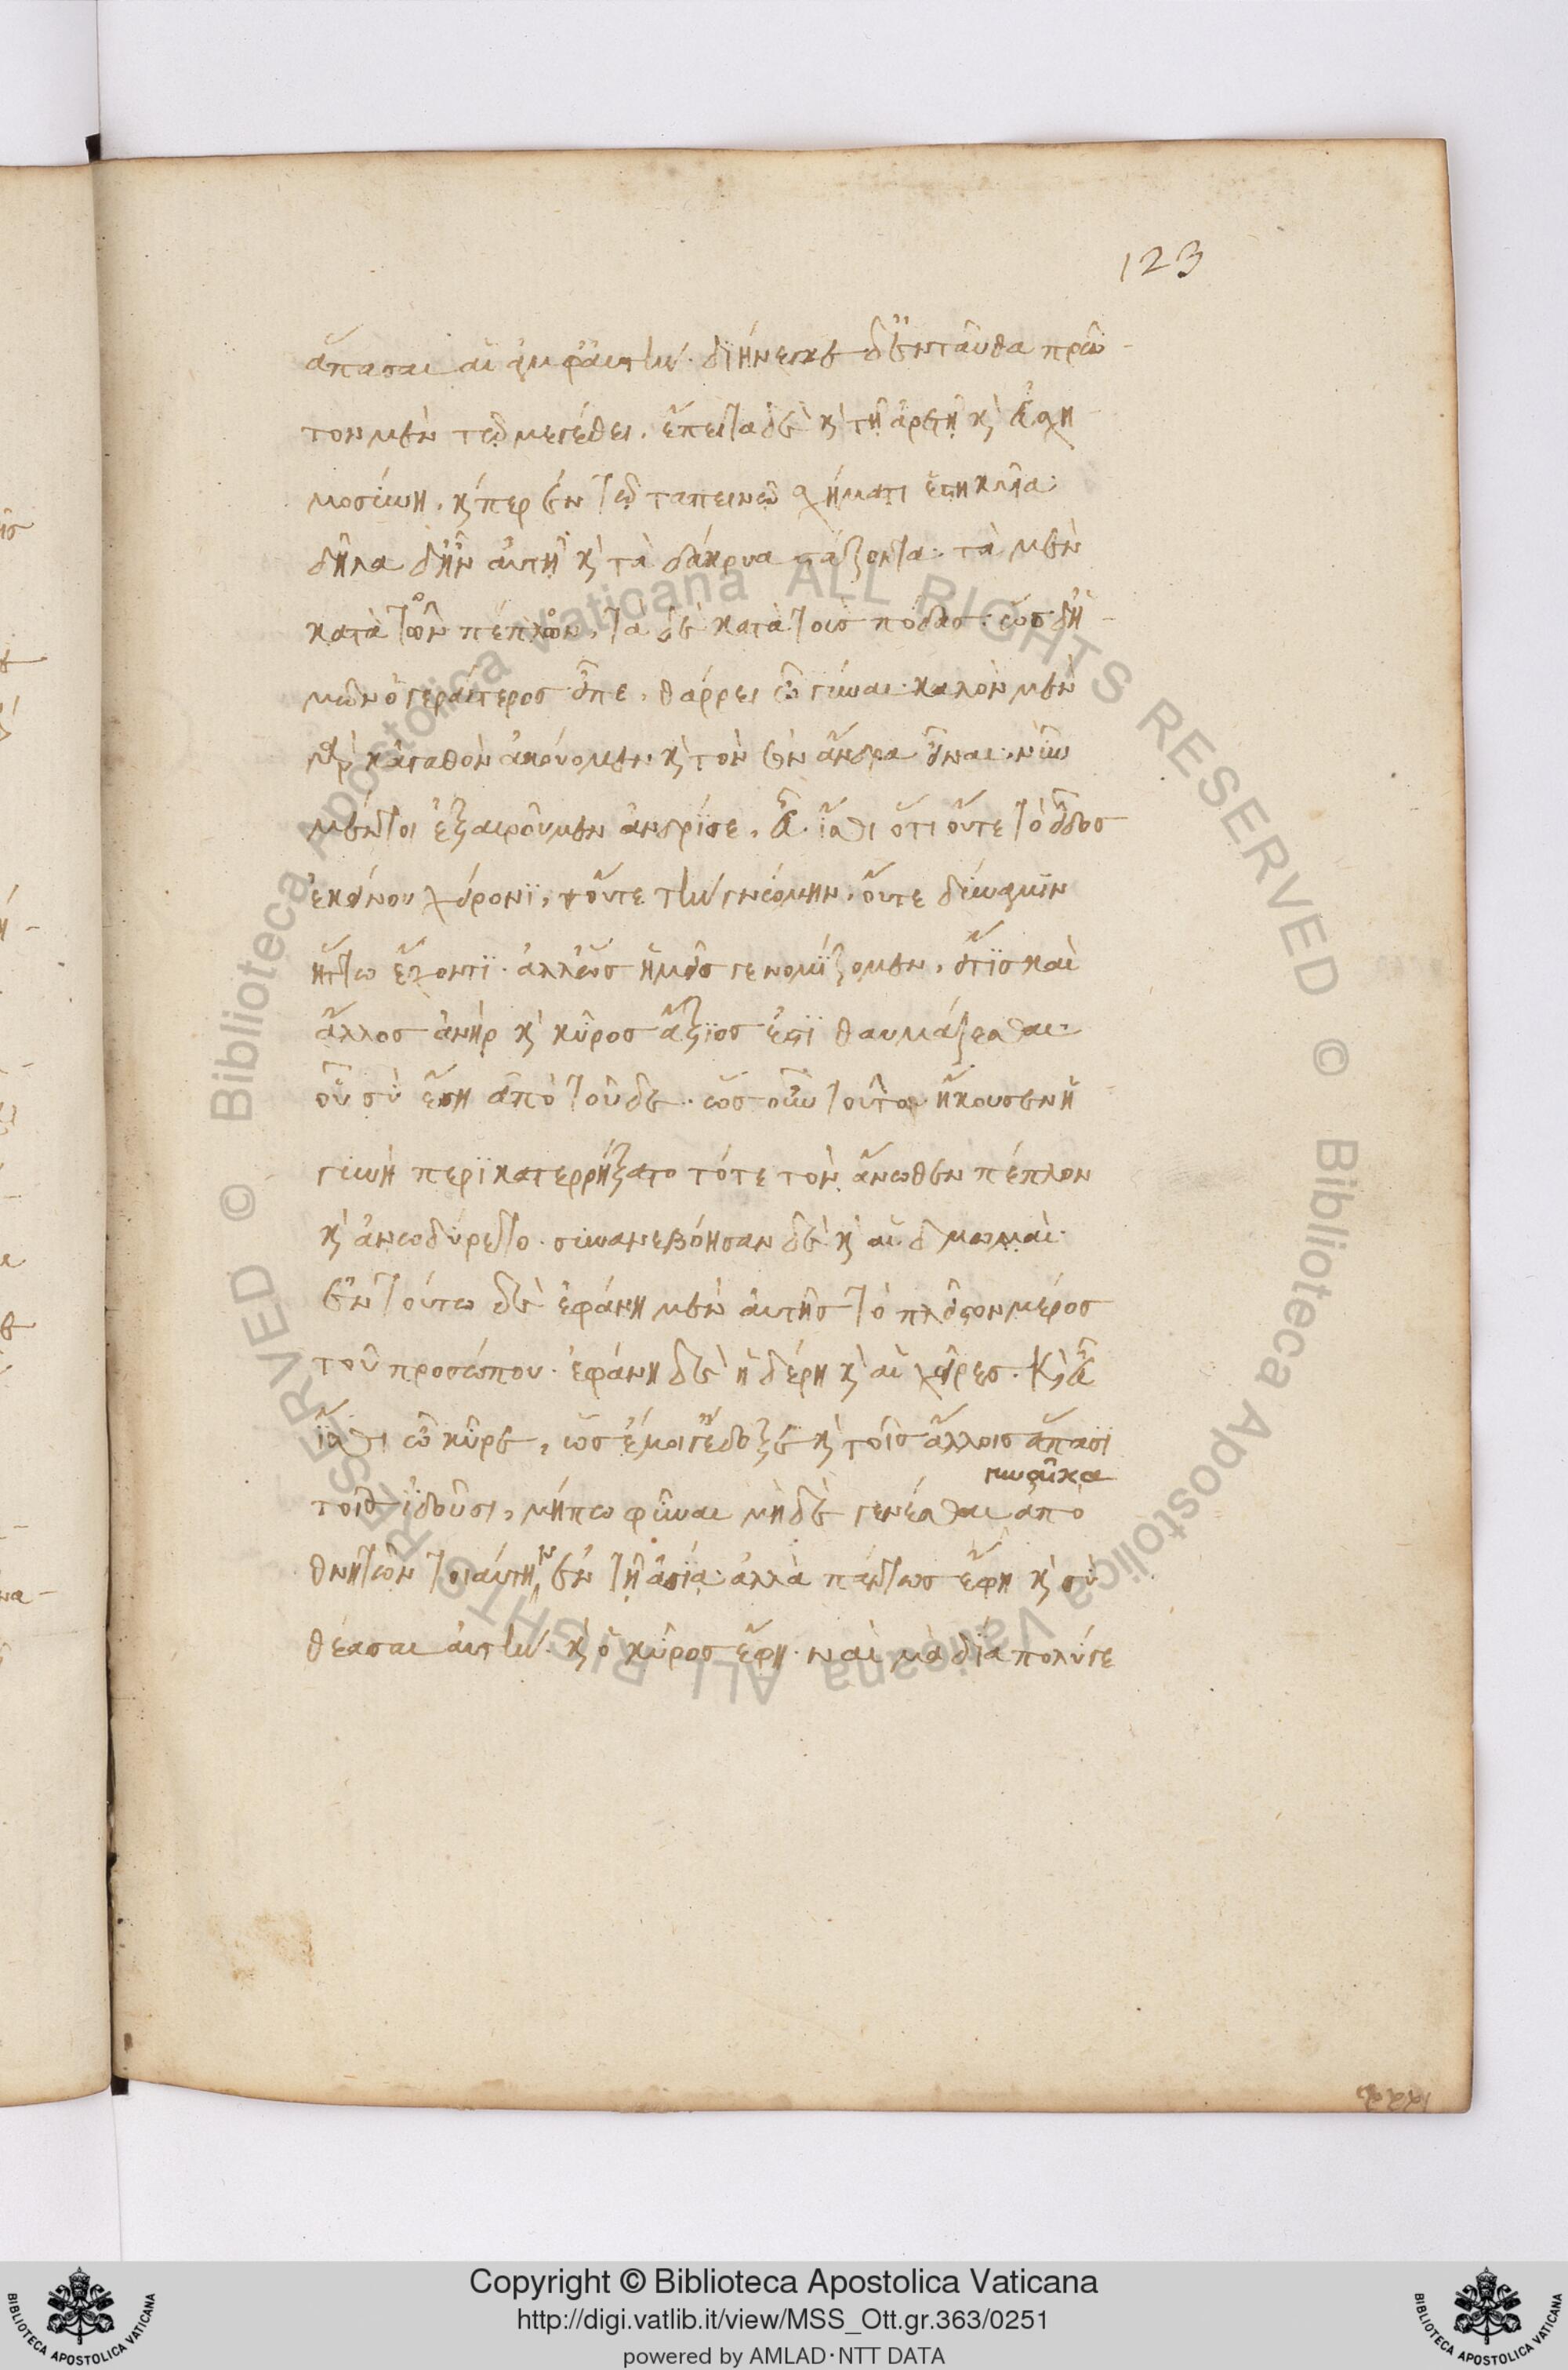 123
ἅπασαι αἱ ἀμφ' αὐτὴν. διήνεγκε δ' ἐνταῦθα πρῶ-
τον μὲν τῷ μεγέθει. ἔπειτα δὲ καὶ τῇ ἀρετῇ καὶ εὐσχη-
μοσύνη. καίπερ ἐν τῷ ταπεινῷ σχήματι ἑστηκυῖα.
δῆλα δ' ἦν αὐτῇ καὶ τὰ δάκρυα στάζοντα. τὰ μὲν
κατὰ τῶν πέπλων, τὰ δὲ κατὰ τοὺς πόδας. ὡς δ' ἡ-
μῶν ὁ γεραίτερος εἶπε, θάρρει ὦ γύναι. καλὸν μὲν
γὰρ κἀγαθὸν ἀκούομεν καὶ τὸν σὸν ἄνδρα εἶναι. νῦν
μέντοι ἐξαιροῦμεν ἀνδρί σε, εὖ ἴσθι ὅτι οὔτε τὸ εἶδος
ἐκείνου χείρονι, οὔτε τὴν γνώμην, οὔτε δύναμιν
ἥττω ἔχοντι. ἀλλ' ὡς ἡμεῖς γε νομίζομεν, εἴ τις καὶ
ἄλλος ἀνὴρ καὶ κῦρος ἄξιός ἐστι θαυμάζεσθαι.
οὗ σὺ ἔσῃ ἀπὸ τοῦδε. ὡς οὖν τοῦτο ἤκουσεν ἡ
γυνὴ περικατερρήξατο τότε τὸν ἄνωθεν πέπλον
καὶ ἀνωδύρετο. συνανεβόησαν δὲ καὶ αἱ δμωαί.
ἐν τούτω δὲ ἐφάνη μὲν αὐτῆς τὸ πλεῖστον μέρος
τοῦ προσώπου. ἐφάνη δὲ ἡ δέρη καὶ αἱ χεῖρες. καὶ εὖ
ἴσθι ὦ κῦρε, ὡς ἐμοί γ' ἔδοξε καὶ τοῖς ἄλλοις ἅπασι
γυναῖκα
τοῖς ἰδοῦσι, μήπω φῦναι μηδὲ γενέσθαι ἀπὸ
θνητῶν τοιαύτην ἐν τῇ ἀσίᾳ. ἀλλὰ πάντως ἔφη καὶ σὺ
θέασαι αὐτὴν. καὶ ὁ κῦρος ἔφη. ναὶ μὰ δία πολύ γε
Copyright © Biblioteca Apostolica Vaticana
http://digi.vatlib.it/view/MSS_Ott.gr.363/0251
powered by AMLAD·NTT DATA